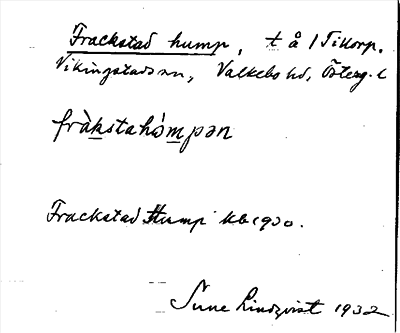 Frackstad hump, t å 1 Tillorp.
Vikingstads sn, Valkebo hd, Österg. l
fràkstahómpən
Frackstad Hump Kb 1930.
Sune Lindqvist 1932